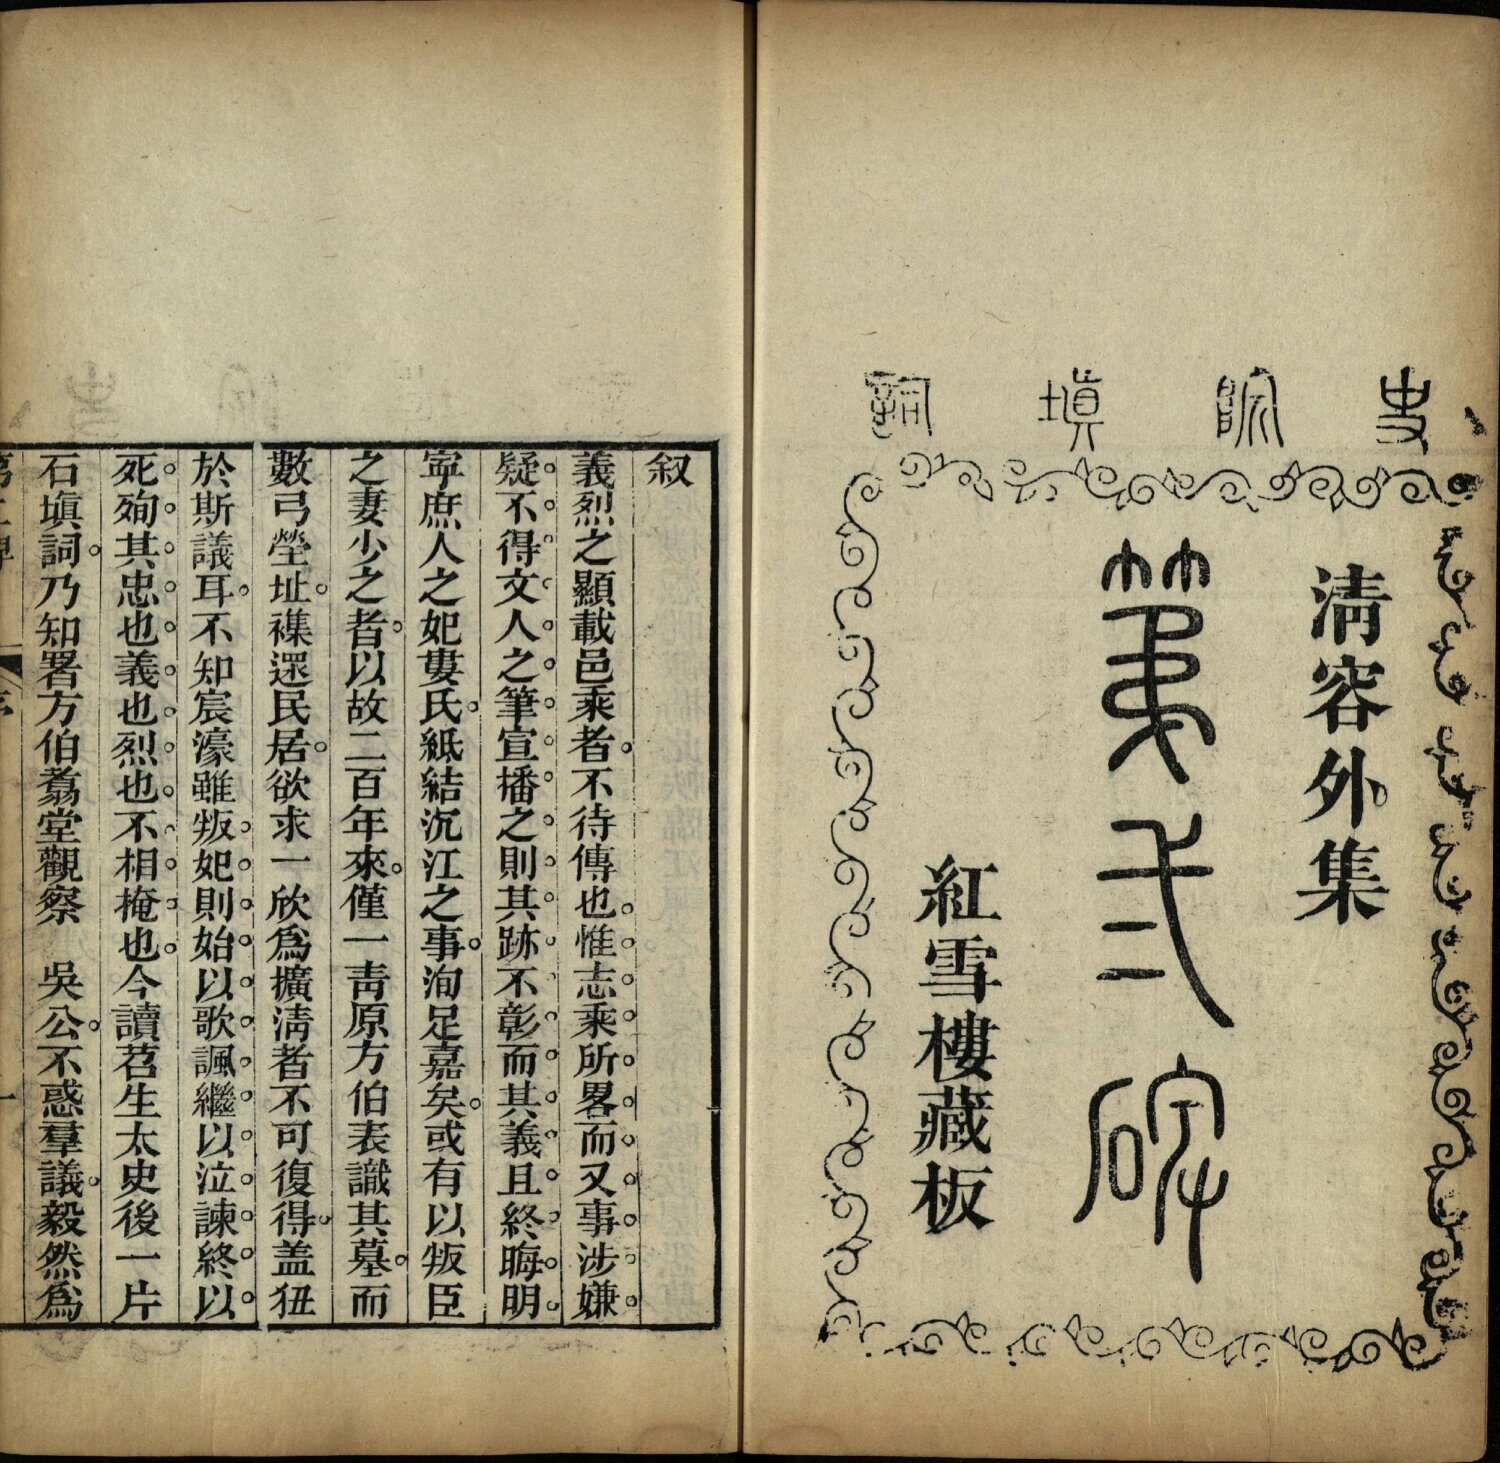 史院填詞
清容外集
第弍碑
紅雪樓藏板
叙
義烈之顯載邑乘者不待傳也惟志乘所畧而又事涉嫌
疑不得文人之筆宣播之則其跡不彰而其義且終晦明
寧庶人之妃婁氏紙結沉江之事洵足嘉矣或有以叛臣
之妻少之者以故二百年來僅一靑原方伯表識其墓而
數弓塋址襍還民居欲求一欣爲擴淸者不可復得盖狃
於斯議耳不知宸濠雖叛妃則始以歌諷繼以泣諫終以
死殉其忠也義也烈也不相掩也今讀苕生太史後一片
石填詞乃知署方伯翥堂觀察 吳公不惑羣議毅然爲